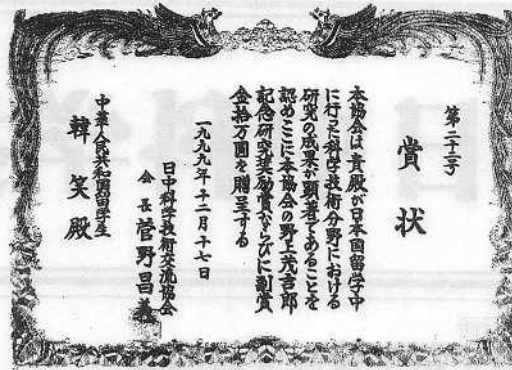 第二十三号
賞状
本協会は貴殿が日本国留学中
に行った科学技術分野における
研究の成果が顕著であることを
認めここに本協会の野上茂吉郎
記念研究奨励賞ならびに副賞
金拾万圓を贈呈する
一九九九年十二月十七日
日中科学技術交流協会
会長 菅野昌義
中華人民共和国留学生
韓笑殿